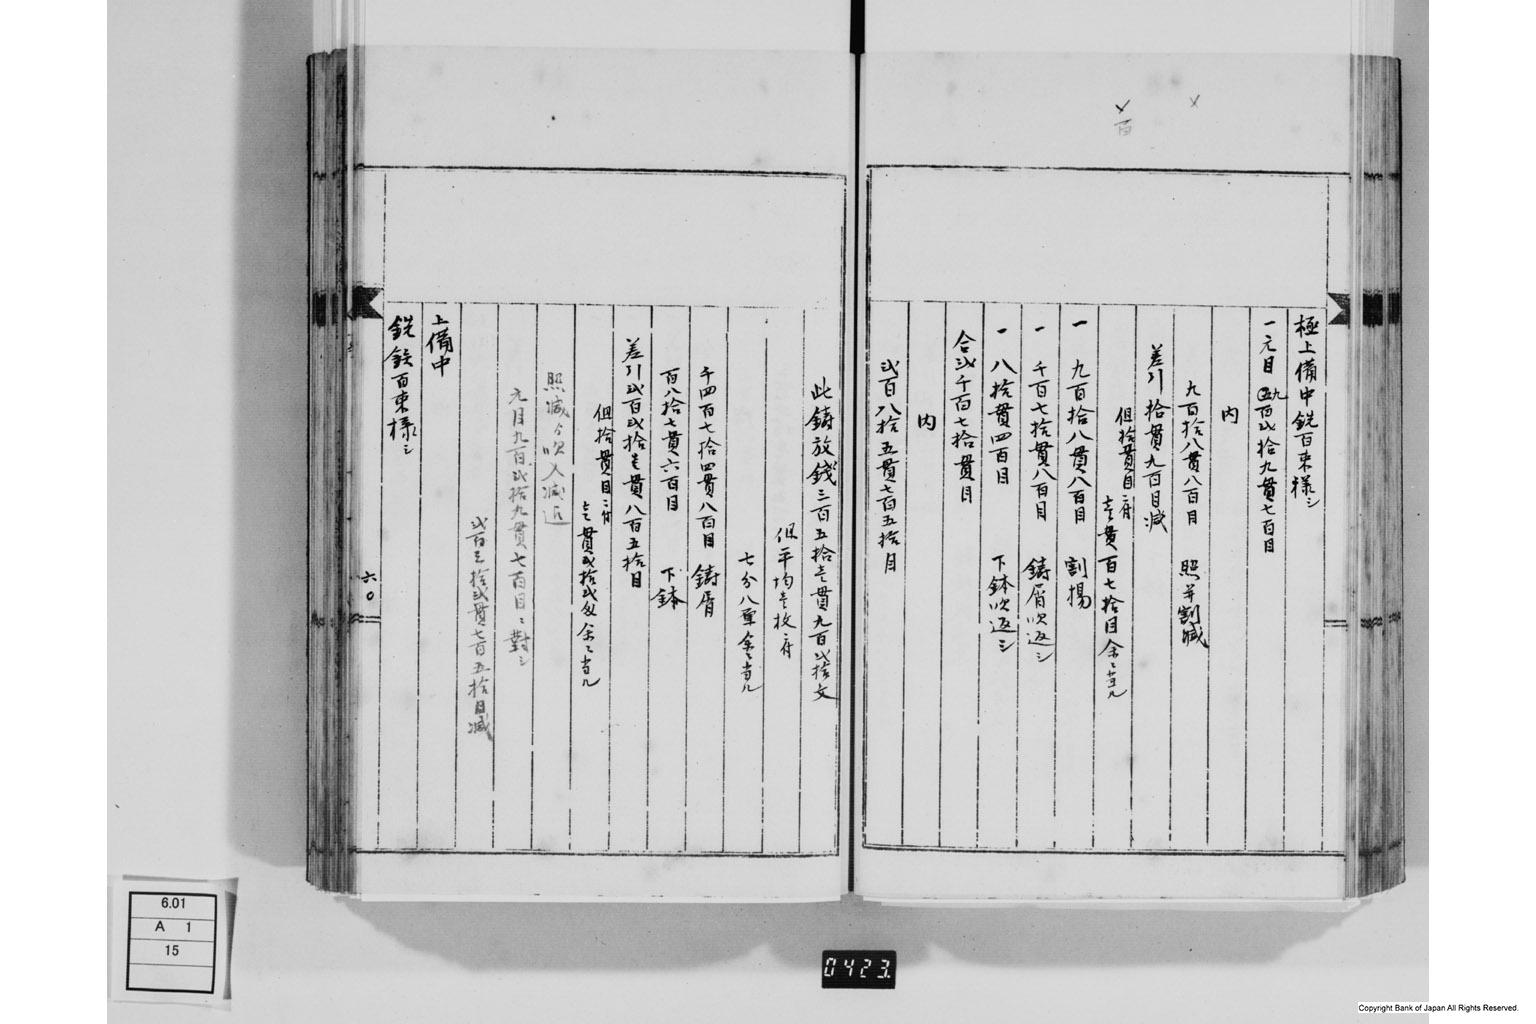 極上備中銑百束様シ
一 元目 九百弐拾九貫七百目
内
九百拾八貫八百目 照并割減
差引拾貫九百目減
但拾貫目ニ付
壱貫百七拾目余ニ当ル
一 九百拾八貫八百目 割揚
一 千百七拾貫八百目 鋳屑吹返シ
一 八拾貫四百目 下鉢吹返シ
合弐千百七拾貫目
内
弐百八拾五貫七百五拾目
此鋳放銭三百五拾壱貫九百弐拾文
但平均壱枚ニ付
七分八厘余ニ当ル
千四百七拾四貫八百目 鋳屑
百八拾七貫六百目 下鉢
差引弐百弐拾壱貫八百五拾目
但拾貫目ニ付
壱貫弐拾弐匁余ニ当ル
照減ゟ吹入減迄
元目九百弐拾九貫七百目ニ對シ
弐百三拾弐貫七百五拾目減
上備中
銑鉄百束様シ
六〇
百
6.01
A 1
15
0423.
Copyright Bank of Japan All Rights Reserved.